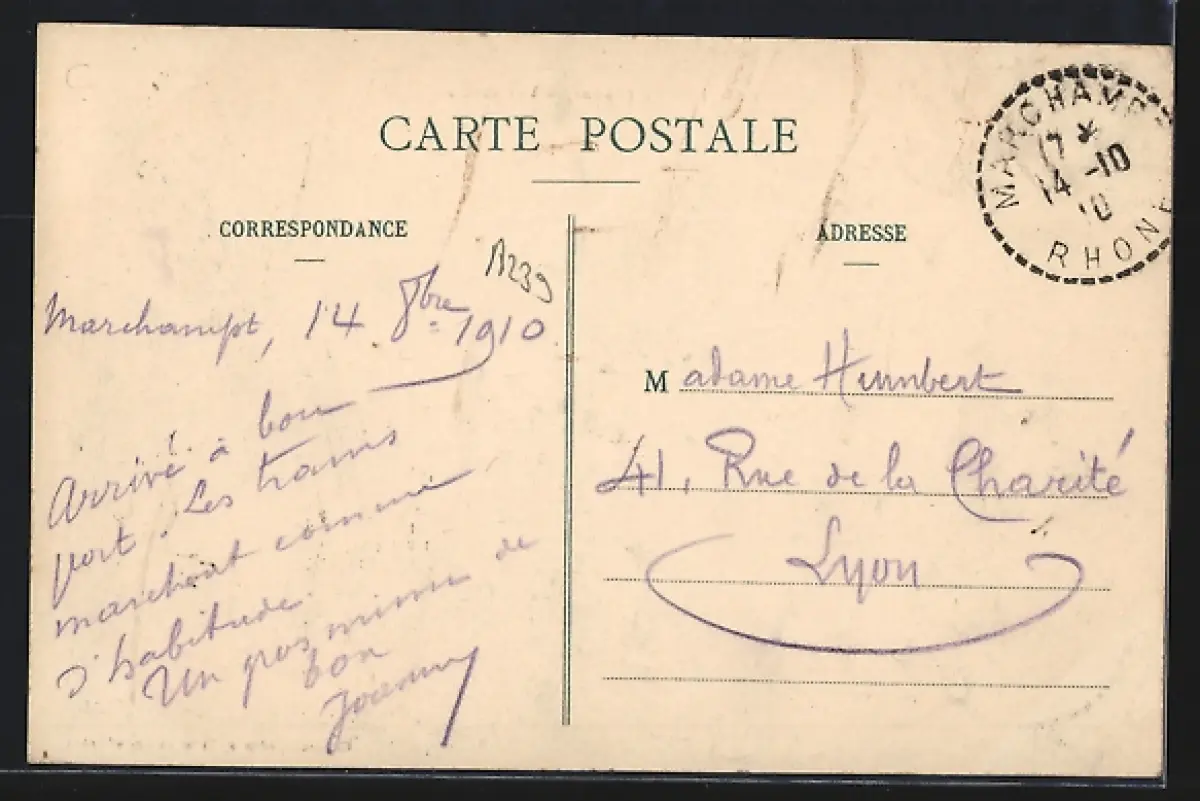 CARTE POSTALE
CORRESPONDANCE
ADRESSE
MARCHAMP
17 *
14 -10
10
RHONE
A239
Marchampt, 14 8bre 1910
Arrivé à bon
port. Les trains
marchent comme
d'habitude.
Un gros mimi de
ton
Joanny
Madame Humbert
41, Rue de la Charité
Lyon